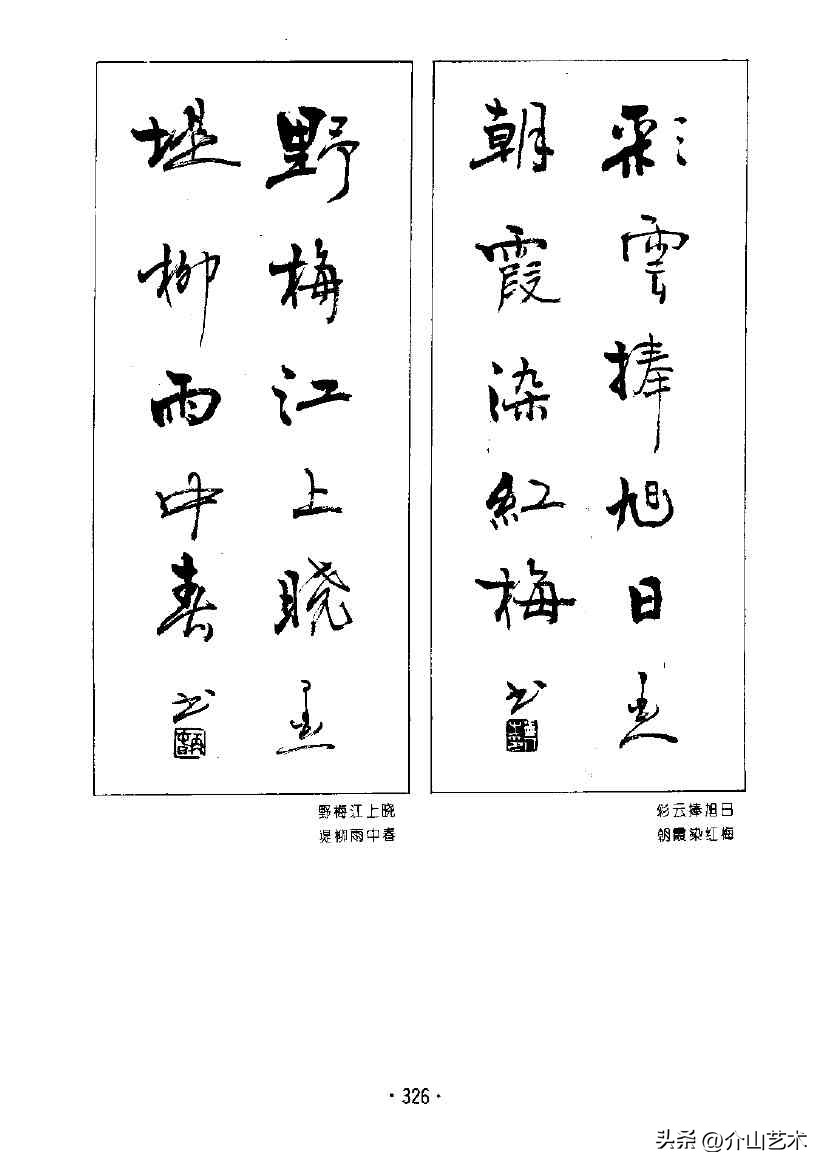 彩雲捧旭日
朝霞染紅梅
书
彩云捧旭日
朝霞染红梅
野梅江上晓
堤柳雨中春
书
野梅江上晓
堤柳雨中春
·326·
头条 @介山艺术